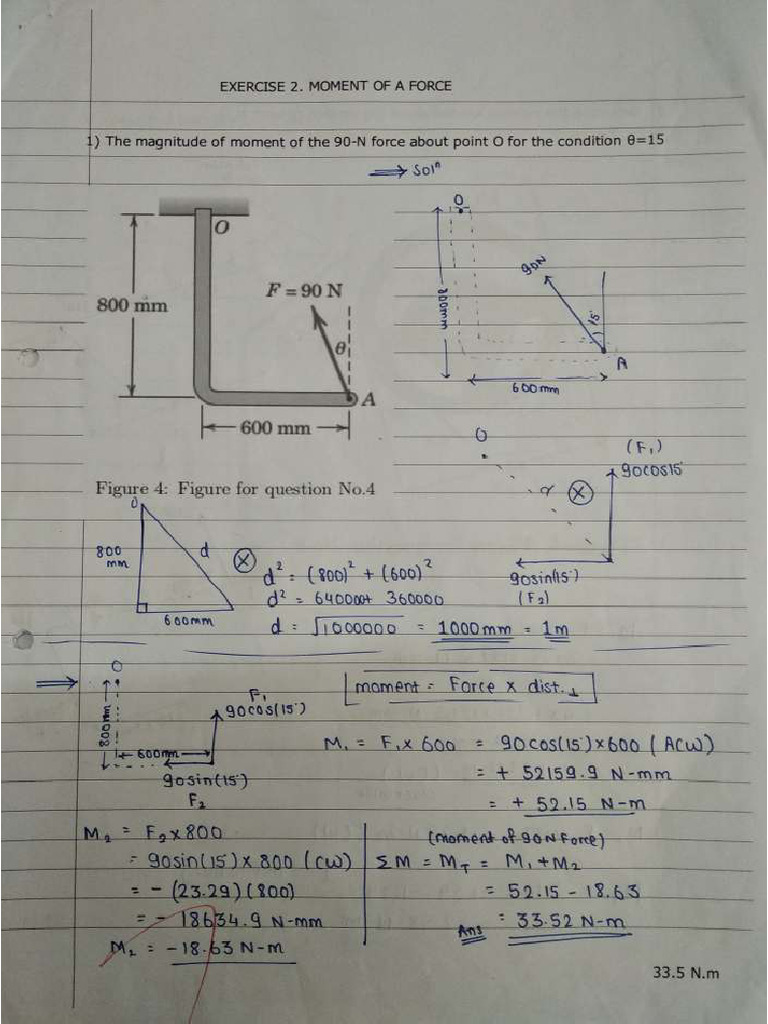 EXERCISE 2. MOMENT OF A FORCE
1) The magnitude of moment of the 90-N force about point O for the condition θ=15
⟹ Solⁿ
O
800 mm
F = 90 N
θ
A
600 mm
Figure 4: Figure for question No.4
O
90N
15°
800mm
A
600mm
O
r
(F₁)
90cos15°
90sin(15°)
(F₂)
O
800
mm
d
600mm
d² = (800)² + (600)²
d² = 640000+ 360000
d = √1000000 = 1000mm = 1m
⟹
O
800mm
600mm
F₁
90cos(15°)
90sin(15°)
F₂
moment = Force x dist.⊥
M₁ = F₁ x 600 = 90cos(15°)x600 (ACW)
= + 52159.9 N-mm
= + 52.15 N-m
M₂ = F₂ x 800
= 90sin(15°) x 800 (CW)
= - (23.29)(800)
= - 18634.9 N-mm
M₂ = -18.63 N-m
(moment of 90N Force)
ΣM = M_T = M₁+M₂
= 52.15 - 18.63
Ans = 33.52 N-m
33.5 N.m